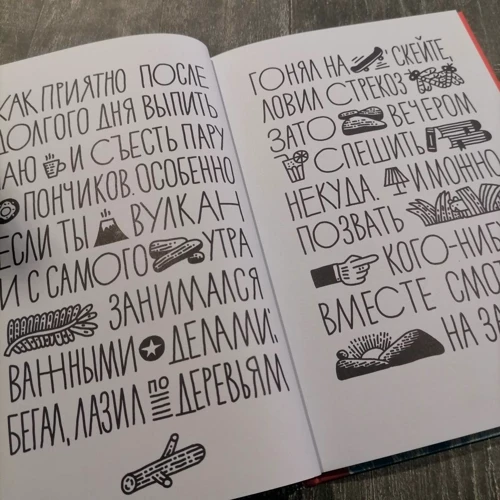 КАК ПРИЯТНО ПОСЛЕ
ДОЛГОГО ДНЯ ВЫПИТЬ
ЧАЮ И СЪЕСТЬ ПАРУ
ПОНЧИКОВ. ОСОБЕННО
ЕСЛИ ТЫ ВУЛКАН
И С САМОГО УТРА
ЗАНИМАЛСЯ
ВАЖНЫМИ ДЕЛАМИ:
БЕГАЛ, ЛАЗИЛ ПО ДЕРЕВЬЯМ
ГОНЯЛ НА СКЕЙТЕ,
ЛОВИЛ СТРЕКОЗ
ЗАТО ВЕЧЕРОМ
СПЕШИТЬ
НЕКУДА. ИМОЖНО
ПОЗВАТЬ
КОГО-НИБУ
ВМЕСТЕ СМОТ
НА ЗА